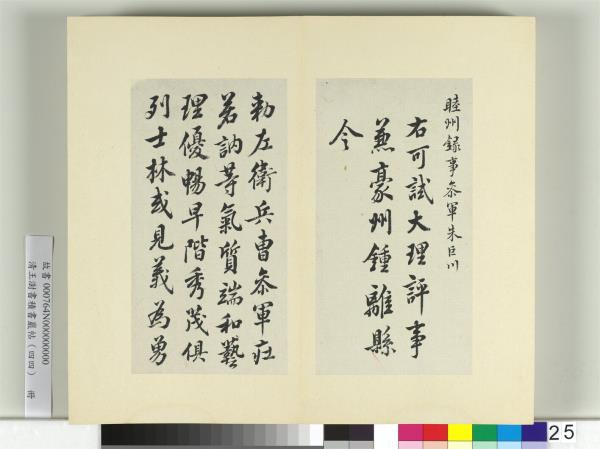 睦州錄事叅軍朱巨川
右可試大理評事
兼豪州鍾離縣
令
勅左衛兵曹叅軍莊
若訥等氣質端和藝
理優暢早階秀茂俱
列士林或見義為勇
故書000764N000000000
清王澍書積書巖帖(四四) 冊
25